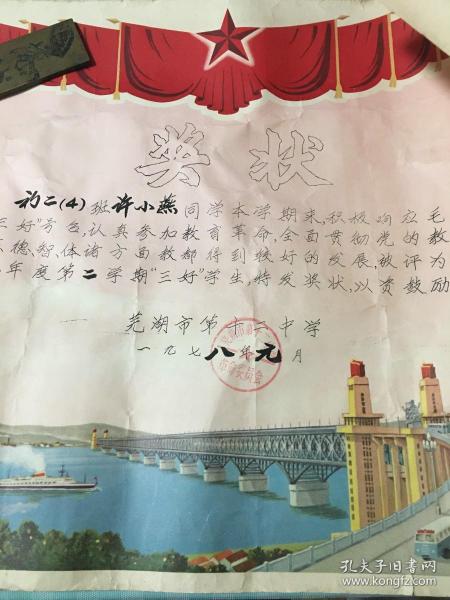 奖状
初二(4)班许小燕同学本学期来,积极响应毛
三好"号召,认真参加教育革命,全面贯彻党的教
德、智、体诸方面教都得到较好的发展,被评为
年度第二学期"三好"学生,特发奖状,以资鼓励
芜湖市第十二中学
一九七八年元月
孔夫子旧书网
www.kongfz.com